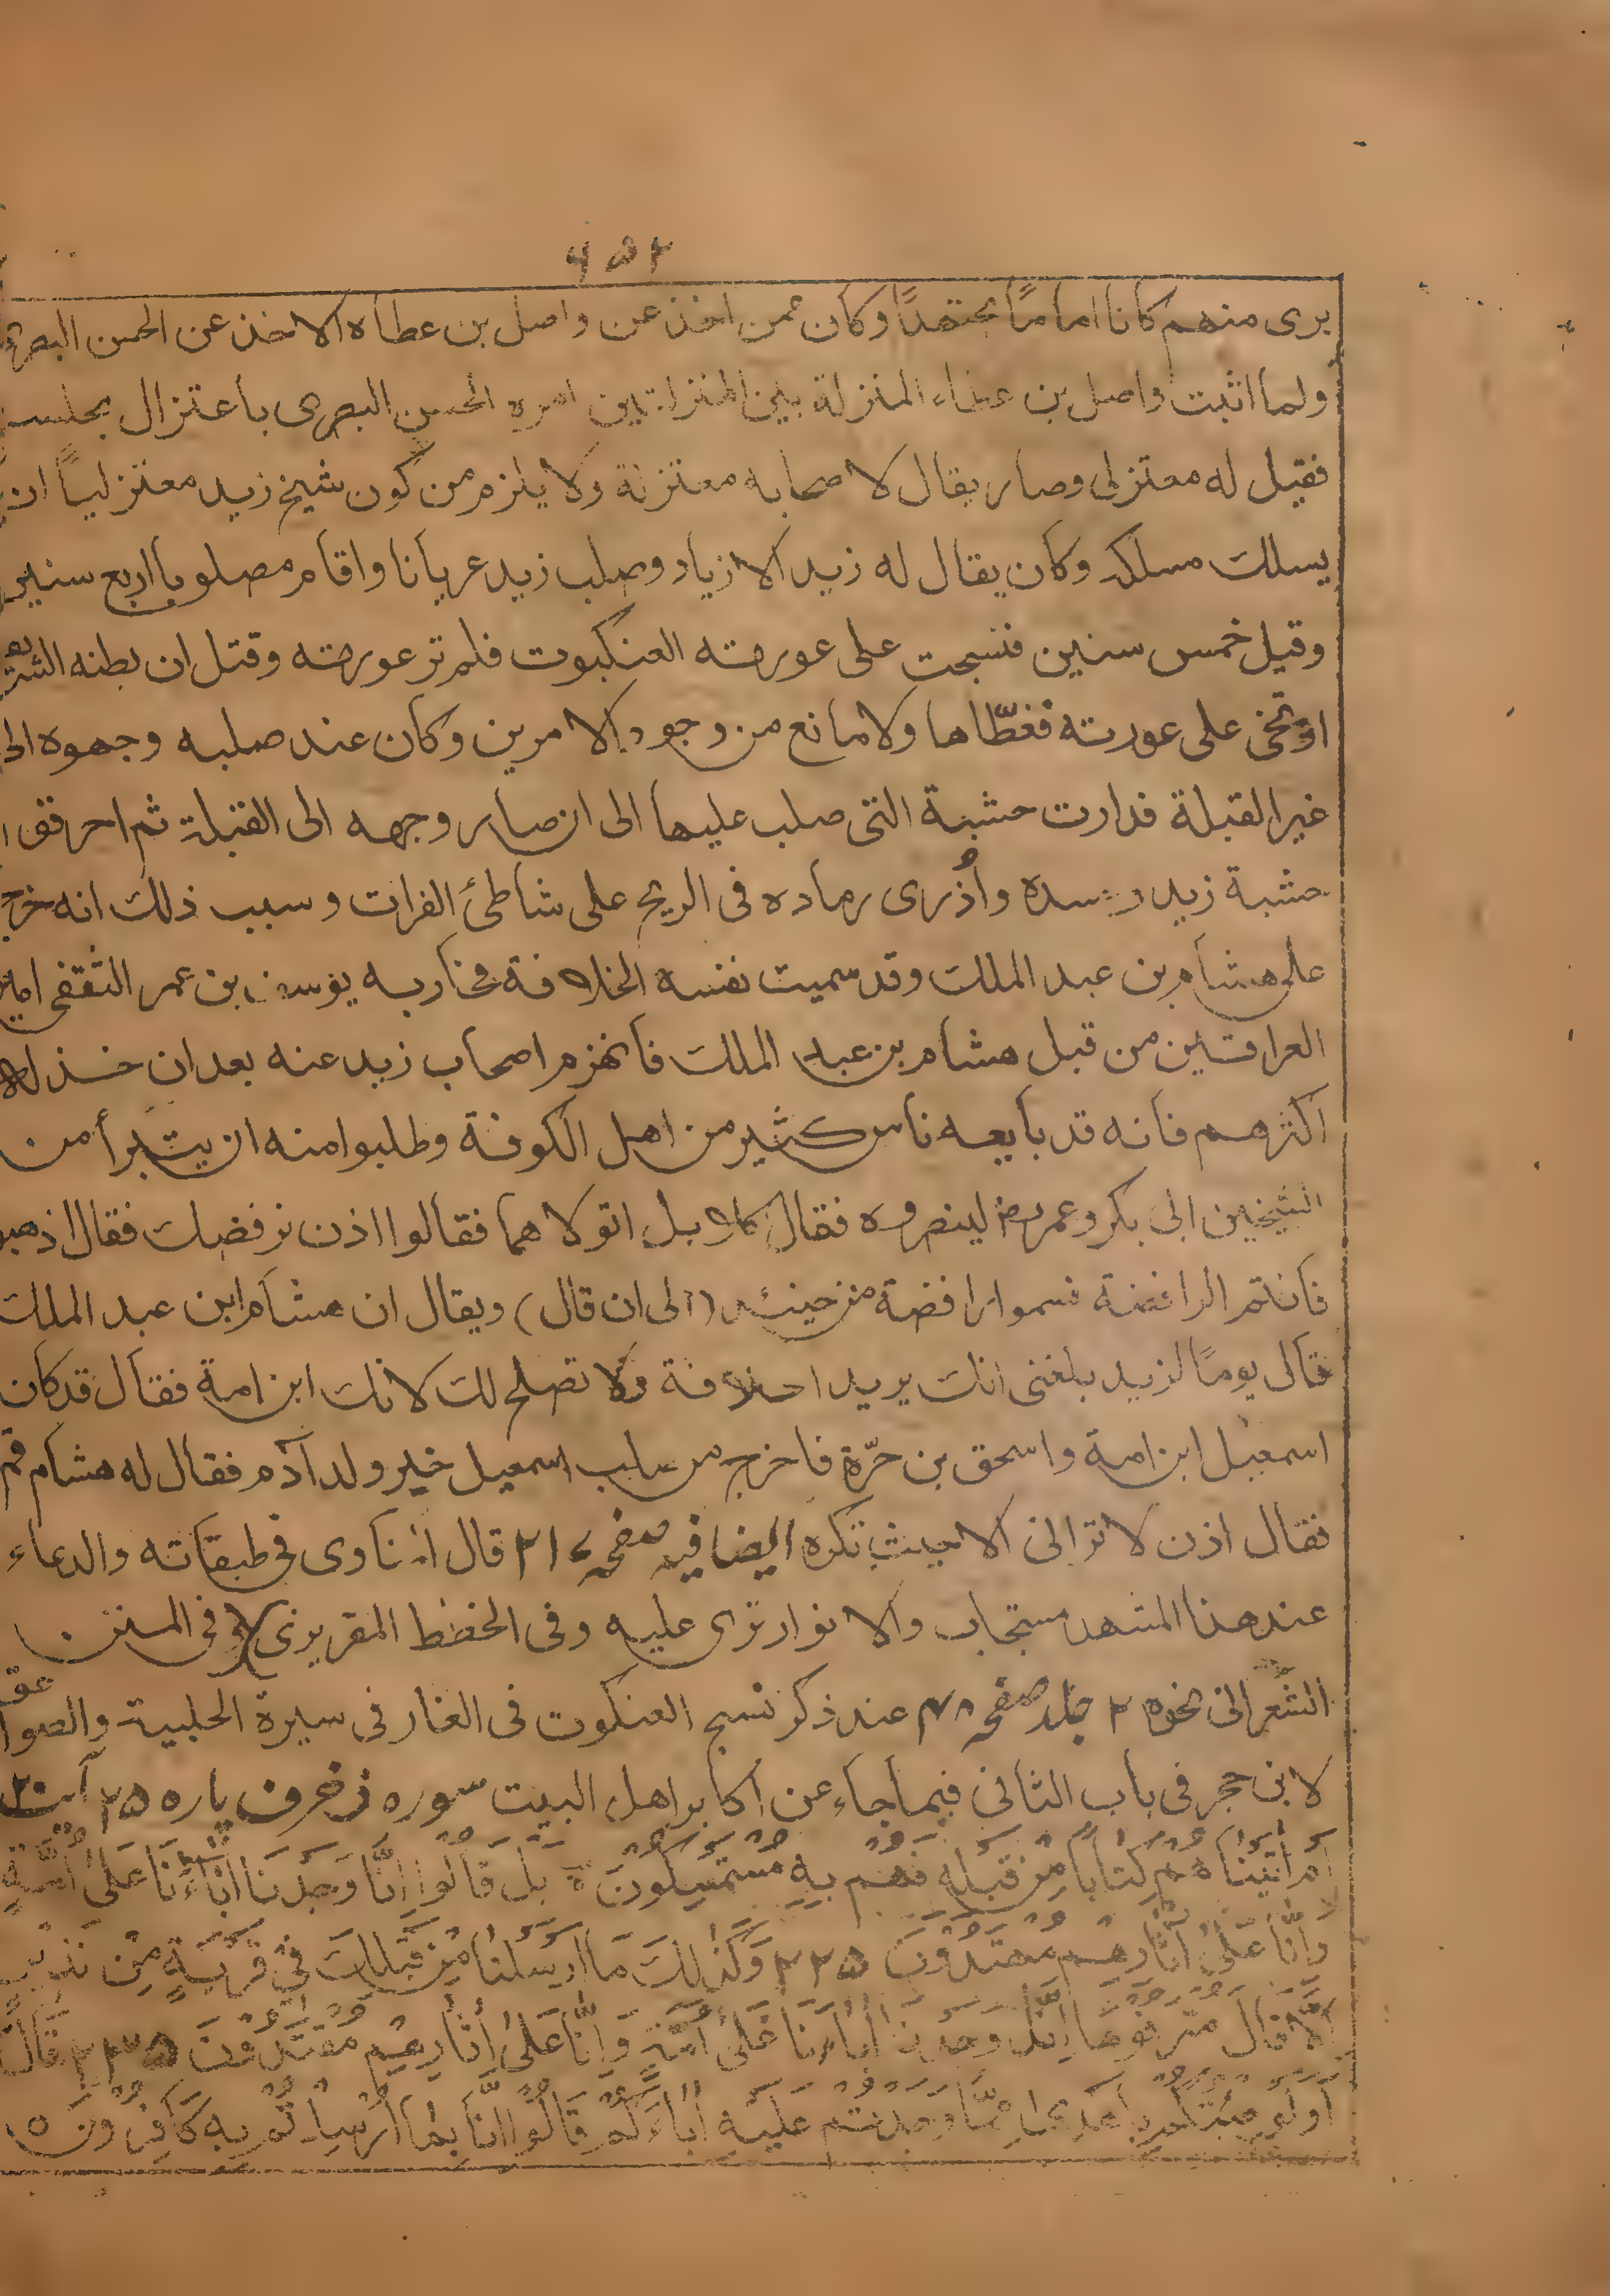 ۴۵۲
برى منهم كانا اماماً مجتهداً وكان ممن اخذ عن واصل بن عطاء الاخذ عن الحسن البصرى
ولما اثبت واصل بن عطاء المنزلة بين المنزلتين امره الحسن البصرى باعتزال مجلسه
فقيل له معتزلى وصار يقال لاصحابه معتزلة ولا يلزم من كون شيخ زيد معتزلياً ان
يسلك مسلكه وكان يقال له زيد الازياد وصلب زيد عريانا واقام مصلوبا اربع سنين
وقيل خمس سنين فنسجت على عورته العنكبوت فلم تر عورته وقتل ان بطنه الشريف
ارتخى على عورته فغطّاها ولا مانع من وجود الامرين وكان عند صلبه وجهوه الى
غير القبلة فدارت خشبة التى صلب عليها الى ان صار وجهه الى القبلة ثم احرقوا
خشبة زيد وجسده وأُذرى رماده فى الريح على شاطئ الفرات وسبب ذلك انه خرج
على هشام بن عبد الملك وقد سميت نفسه الخلافة فحاربه يوسف بن عمر الثقفى امير
العراقين من قبل هشام بن عبد الملك فانهزم اصحاب زيد عنه بعد ان خذله
اكثرهم فانه قد بايعه ناس كثير من اهل الكوفة وطلبوا منه ان يتبرأ من
الشيخين ابى بكر وعمر رض لينصروه فقال كلا بل اتولاهما فقالوا اذن نرفضك فقال اذهبوا
فانتم الرافضة فسموا رافضة من حينئذ (الى ان قال) ويقال ان هشام ابن عبد الملك
قال يوماً لزيد بلغنى انك يريد الخلافة ولا تصلح لك لانك ابن امة فقال قد كان
اسمعيل ابن امة واسحق بن حرّة فاخرج من صلب اسمعيل خير ولد آدم فقال له هشام قم
فقال اذن لا ترانى الا حيث تكره ايضا فيه صفحه ۲۱۷ قال المناوى فى طبقاته والدعاء
عند هذا المشهد مستجاب والانوار ترى عليه وفى الخطط المقريزى وفى المنن
الشعرانى نحوه ۲ جلد صفحه ۳۸ عند ذكر نسج العنكبوت فى الغار فى سيرة الحلبية والصواعق
لابن حجر فى باب الثانى فيما جاء عن اكابر اهل البيت سوره زخرف پاره ۲۵ آيت ۲۰
اَمْ اٰتَيْنَاهُمْ كِتٰبًا مِّنْ قَبْلِهٖ فَهُمْ بِهٖ مُسْتَمْسِكُوْنَ ه بَلْ قَالُوْا اِنَّا وَجَدْنَا اٰبَاءَنَا عَلٰى اُمَّةٍ
وَّاِنَّا عَلٰى اٰثَارِهِمْ مُهْتَدُوْنَ ۲۲ه وَكَذٰلِكَ مَا اَرْسَلْنَا مِنْ قَبْلِكَ فِىْ قَرْيَةٍ مِّنْ نَّذِيْرٍ
اِلَّا قَالَ مُتْرَفُوْهَا اِنَّا وَجَدْنَا اٰبَاءَنَا عَلٰى اُمَّةٍ وَّاِنَّا عَلٰى اٰثَارِهِمْ مُقْتَدُوْنَ ۲۳ه قَالَ
اَوَلَوْ جِئْتُكُمْ بِاَهْدٰى مِمَّا وَجَدْتُّمْ عَلَيْهِ اٰبَاءَكُمْ قَالُوْا اِنَّا بِمَا اُرْسِلْتُمْ بِهٖ كَافِرُوْنَ ه